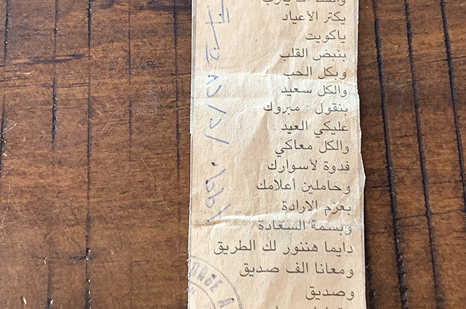 يكتر الأعياد
ياكويت
بنبض القلب
وبكل الحب
والكل سعيد
بنقول : مبروك
عليكي العيد
والكل معاكي
فدوة لأسوارك
وحاملين أعلامك
بعزم الارادة
وبسمة السعادة
دايما هننور لك الطريق
ومعانا الف صديق
وصديق